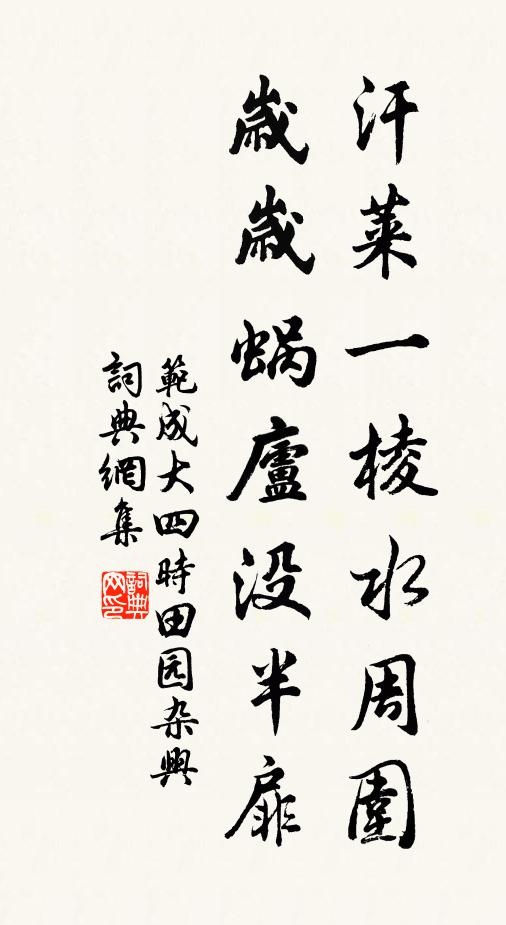 汙萊一棱水周圍
歲歲蝸廬没半扉
範成大四時田园杂興
詞典網集
詞典网印